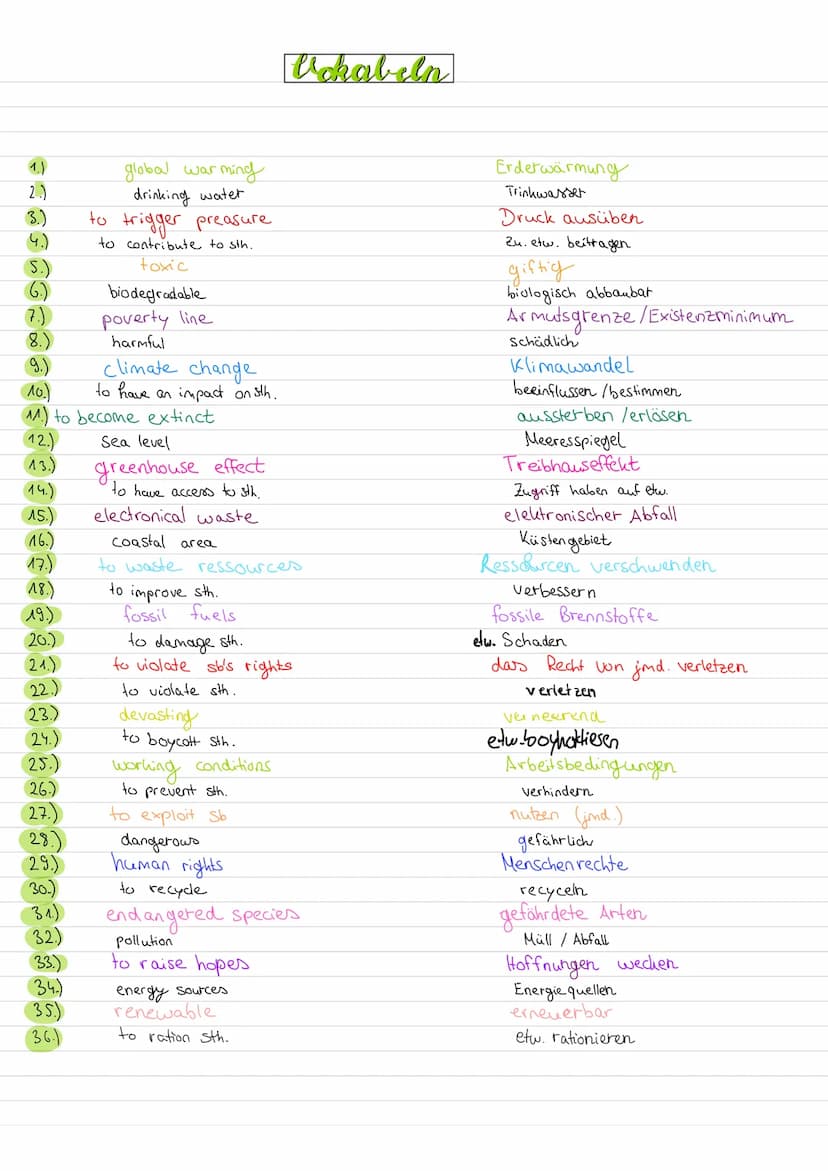 Vokabeln
1.) global warming Erderwärmung
2.) drinking water Trinkwasser
3.) to trigger preasure Druck ausüben
4.) to contribute to sth. zu etw. beitragen
5.) toxic giftig
6.) biodegradable biologisch abbaubar
7.) poverty line Armutsgrenze/Existenzminimum
8.) harmful schädlich
9.) climate change Klimawandel
10.) to have an impact on sth. beeinflussen/bestimmen
11.) to become extinct aussterben/erlösen
12.) Sea level Meeresspiegel
13.) greenhouse effect Treibhauseffekt
14.) to have access to sth. Zugriff haben auf etw.
15.) electronical waste elektronischer Abfall
16.) coastal area Küstengebiet
17.) to waste ressources Ressourcen verschwenden
18.) to improve sth. verbessern
19.) fossil fuels fossile Brennstoffe
20.) to damage sth. etw. Schaden
21.) to violate sb's rights das Recht von jmd. verletzen
22.) to violate sth. verletzen
23.) devasting verheerend
24.) to boycott sth. etw. boykottiesen
25.) working conditions Arbeitsbedingungen
26.) to prevent sth. verhindern
27.) to exploit sb nutzen (jmd.)
28.) dangerous gefährlich
29.) human rights Menschenrechte
30.) to recycle recyceln
31.) endangered species gefährdete Arten
32.) pollution Müll / Abfall
33.) to raise hopes Hoffnungen wecken
34.) energy sources Energiequellen
35.) renewable erneuerbar
36.) to ration sth. etw. rationieren